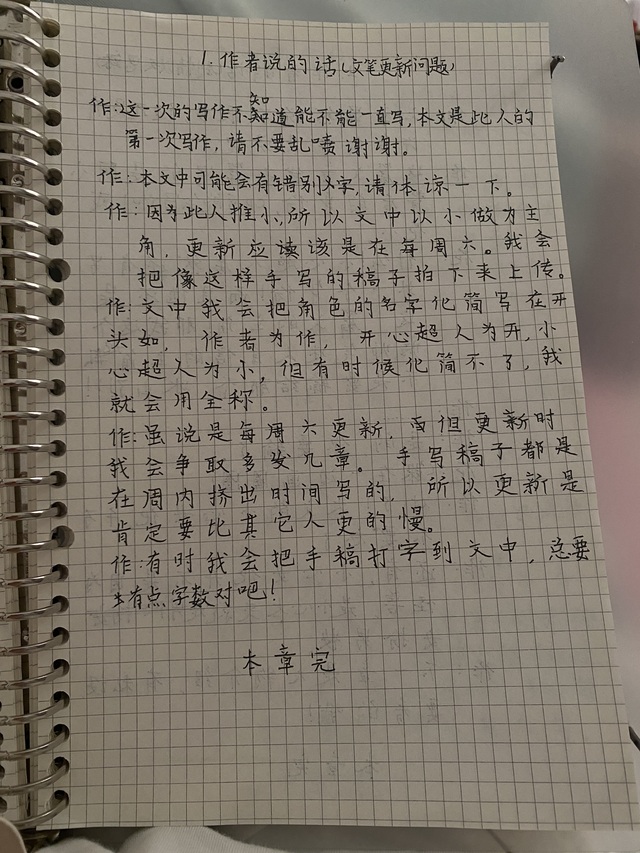 1.作者说的话(文笔更新问题)
作:这一次的写作不知道能不能一直写,本文是此人的
第一次写作,请不要乱喷谢谢。
作:本文中可能会有错别字,请体谅一下。
作:因为此人推小,所以文中以小做为主
角,更新应读该是在每周六。我会
把像这样手写的稿子拍下来上传。
作:文中我会把角色的名字化简写在开
头如,作者为作,开心超人为开,小
心超人为小,但有时候化简不了,我
就会用全称。
作:虽说是每周六更新,但更新时
我会争取多发几章。手写稿子都是
在周内挤出时间写的,所以更新是
肯定要比其它人更的慢。
作:有时我会把手稿打字到文中,总要
有点字数对吧!
本章完